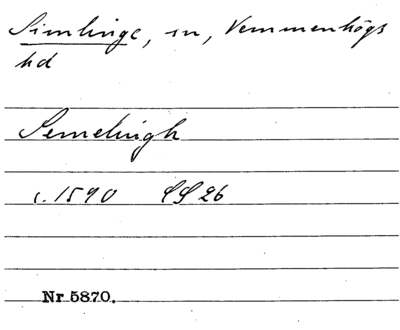 Simlinge, sn, Vemmenhögs
hd
Semelingh
c. 1590 SS 26
Nr 5870.